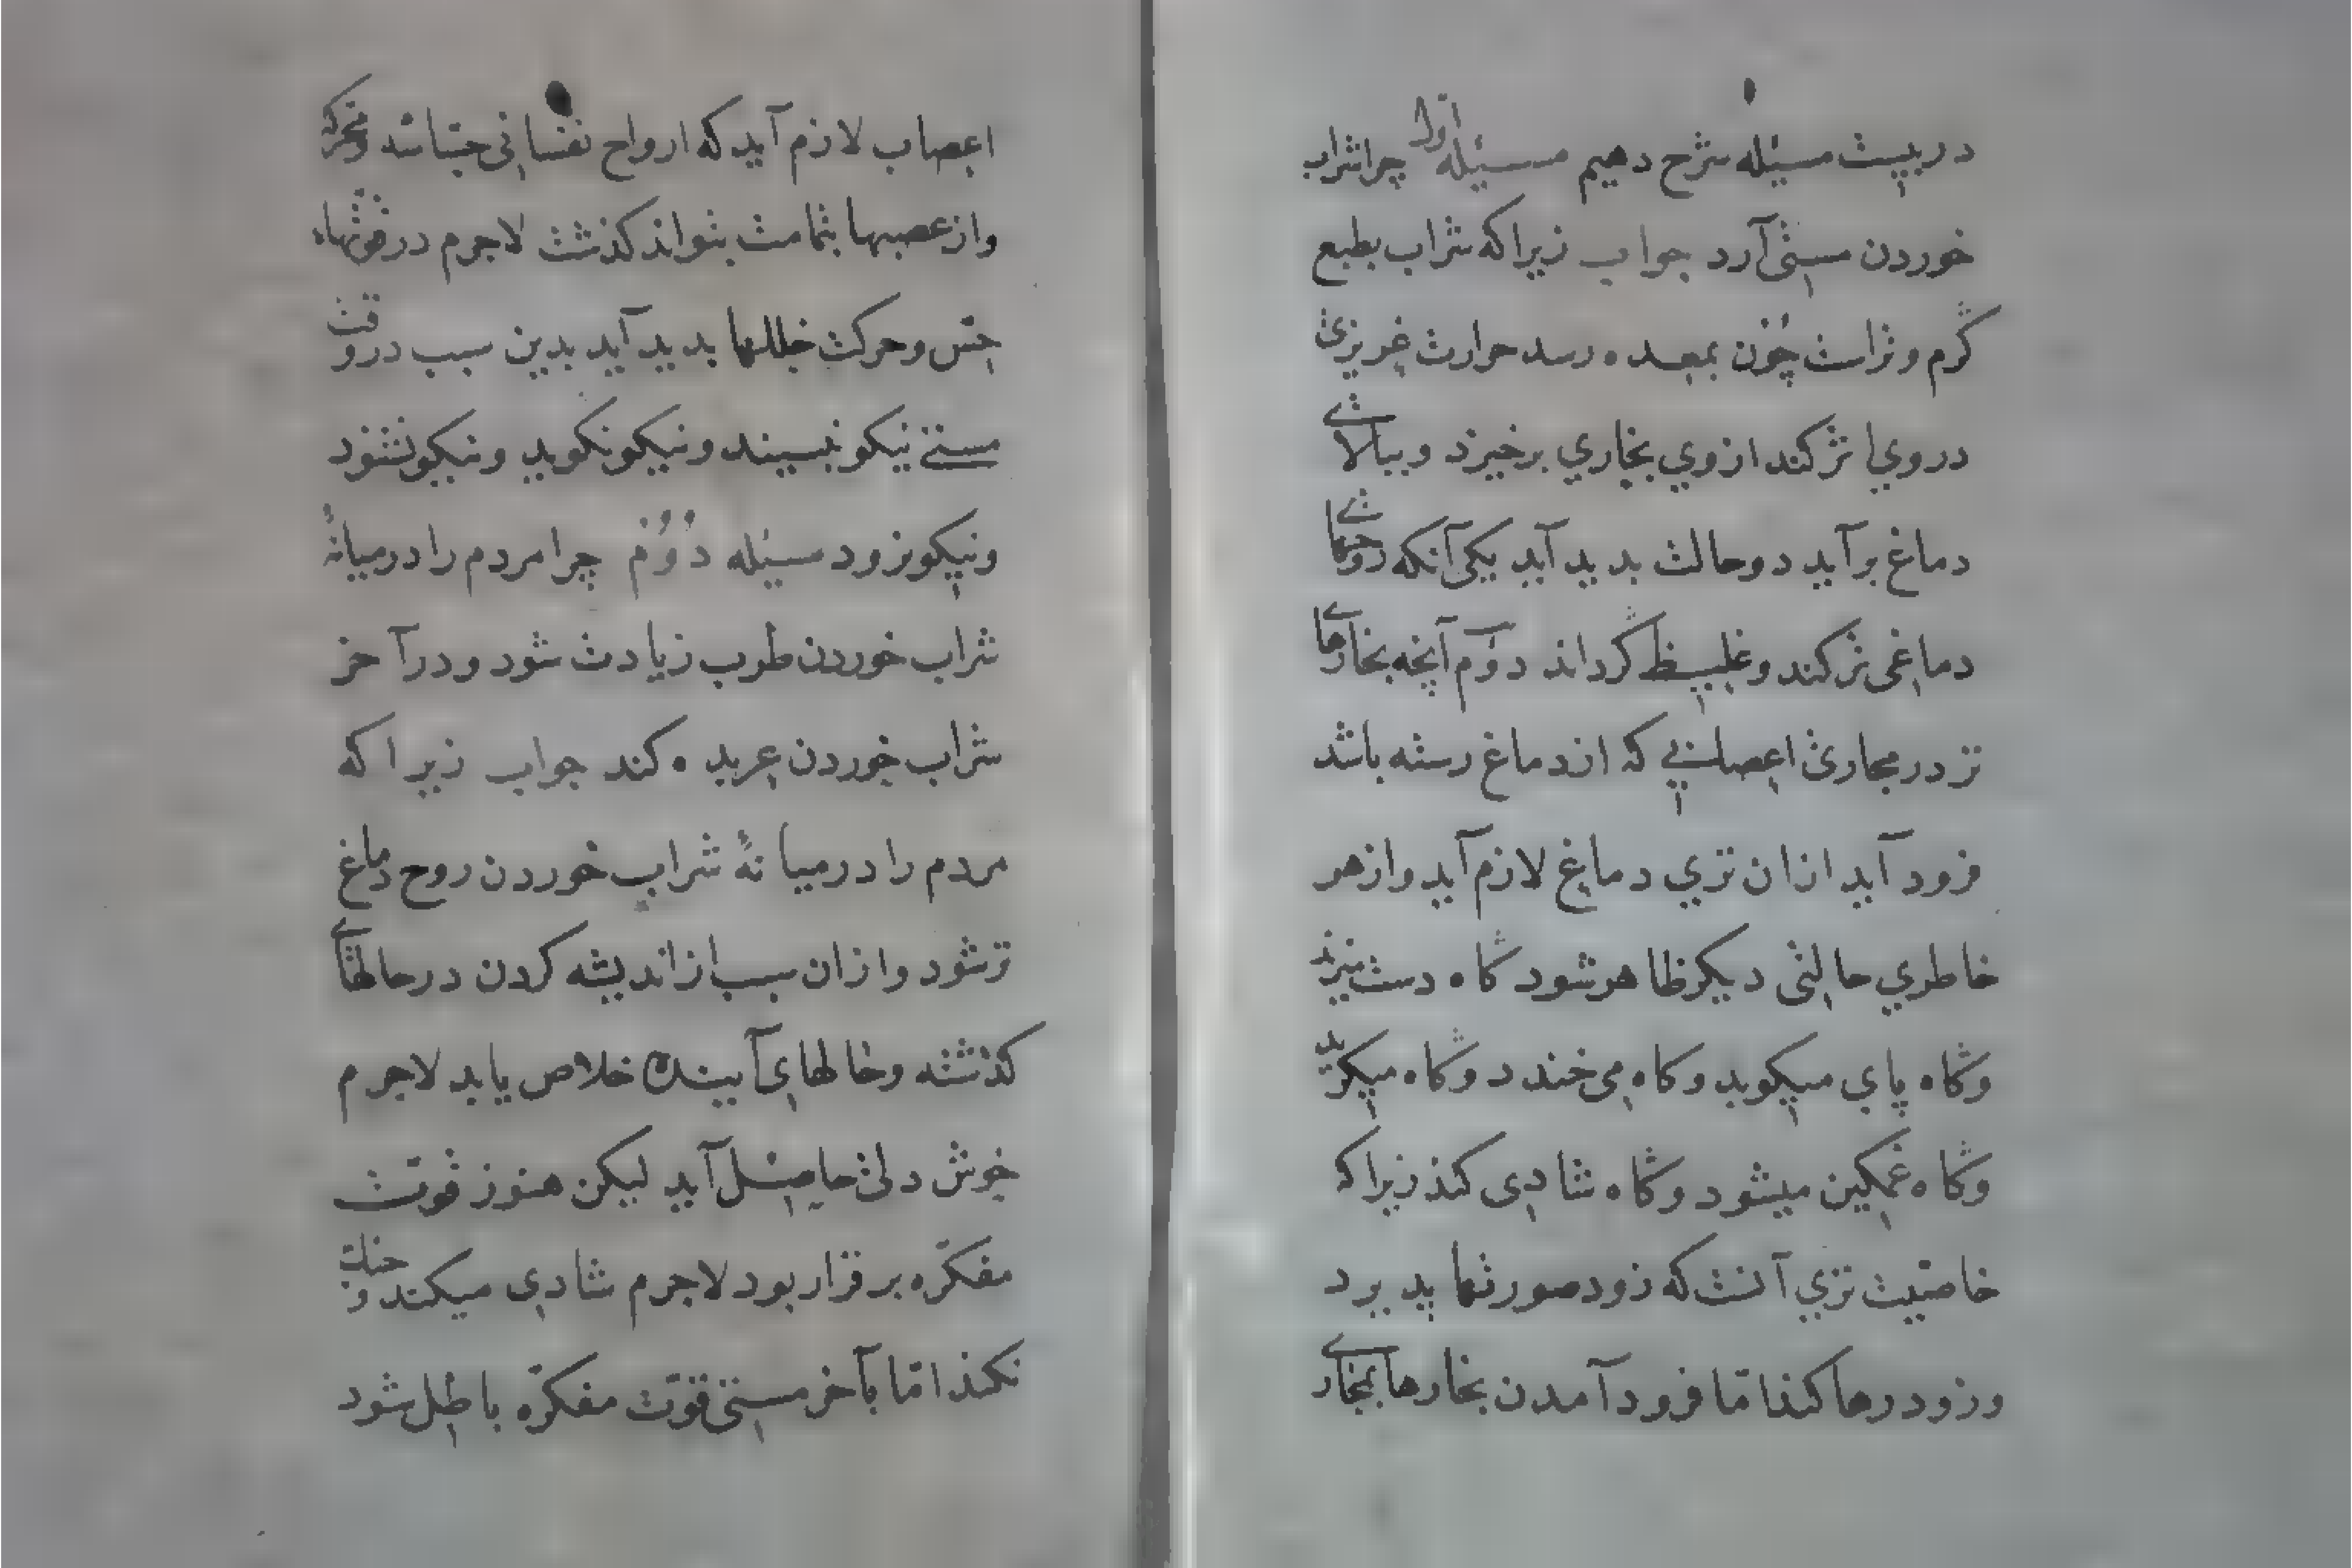 در بیست مسئله شرح دهیم مسئله اول چرا شراب
خوردن مستی آرد جواب زیرا که شراب بطبع
گرم و تر است چون بمعده رسد حرارت غریزی
در وی اثر کند از وی بخاری برخیزد و ببالای
دماغ برآید دو حالت بدید آید یکی آنکه روحهای
دماغی تر کند و غلیظ گرداند دوم آنچه بخارهای
تر در مجاری اعصابی که از دماغ رسته باشد
فرود آید از ان تری دماغ لازم آید و از هر
خاطری حالتی دیکر ظاهر شود گاه دست میزند
وگاه پای میکوبد وکاه می خندد وگاه میکرید
وگاه غمکین میشود وگاه شادی کند زیرا که
خاصیت تری آنست که زود صورتها پدیرد
وزود رها کند اما فرود آمدن بخارها بمجاری
اعصاب لازم آید که ارواح نفسانی حساسه ومحرکه
واز عصبها بتمامت بتواند کذشت لاجرم در قوتهاء
حس وحرکت خللها بدید آید بدین سبب در وقت
مستی نیکو نبیند ونیکو نکوید ونیکو نشنود
ونیکو نرود مسئله دوم چرا مردم را در میانهٔ
شراب خوردن طرب زیادت شود ودر آخر
شراب خوردن عربده کند جواب زیرا که
مردم را در میانهٔ شراب خوردن روح دماغ
تر شود واز ان سبب از اندیشه کردن در حالهای
کذشته وحالهای آینده خلاص یابد لاجرم
خوش دلی حاصل آید لیکن هنوز قوت
مفکره بر قرار بود لاجرم شادی میکند وجنك
نکند اما بآخر مستی قوت مفکره باطل شود